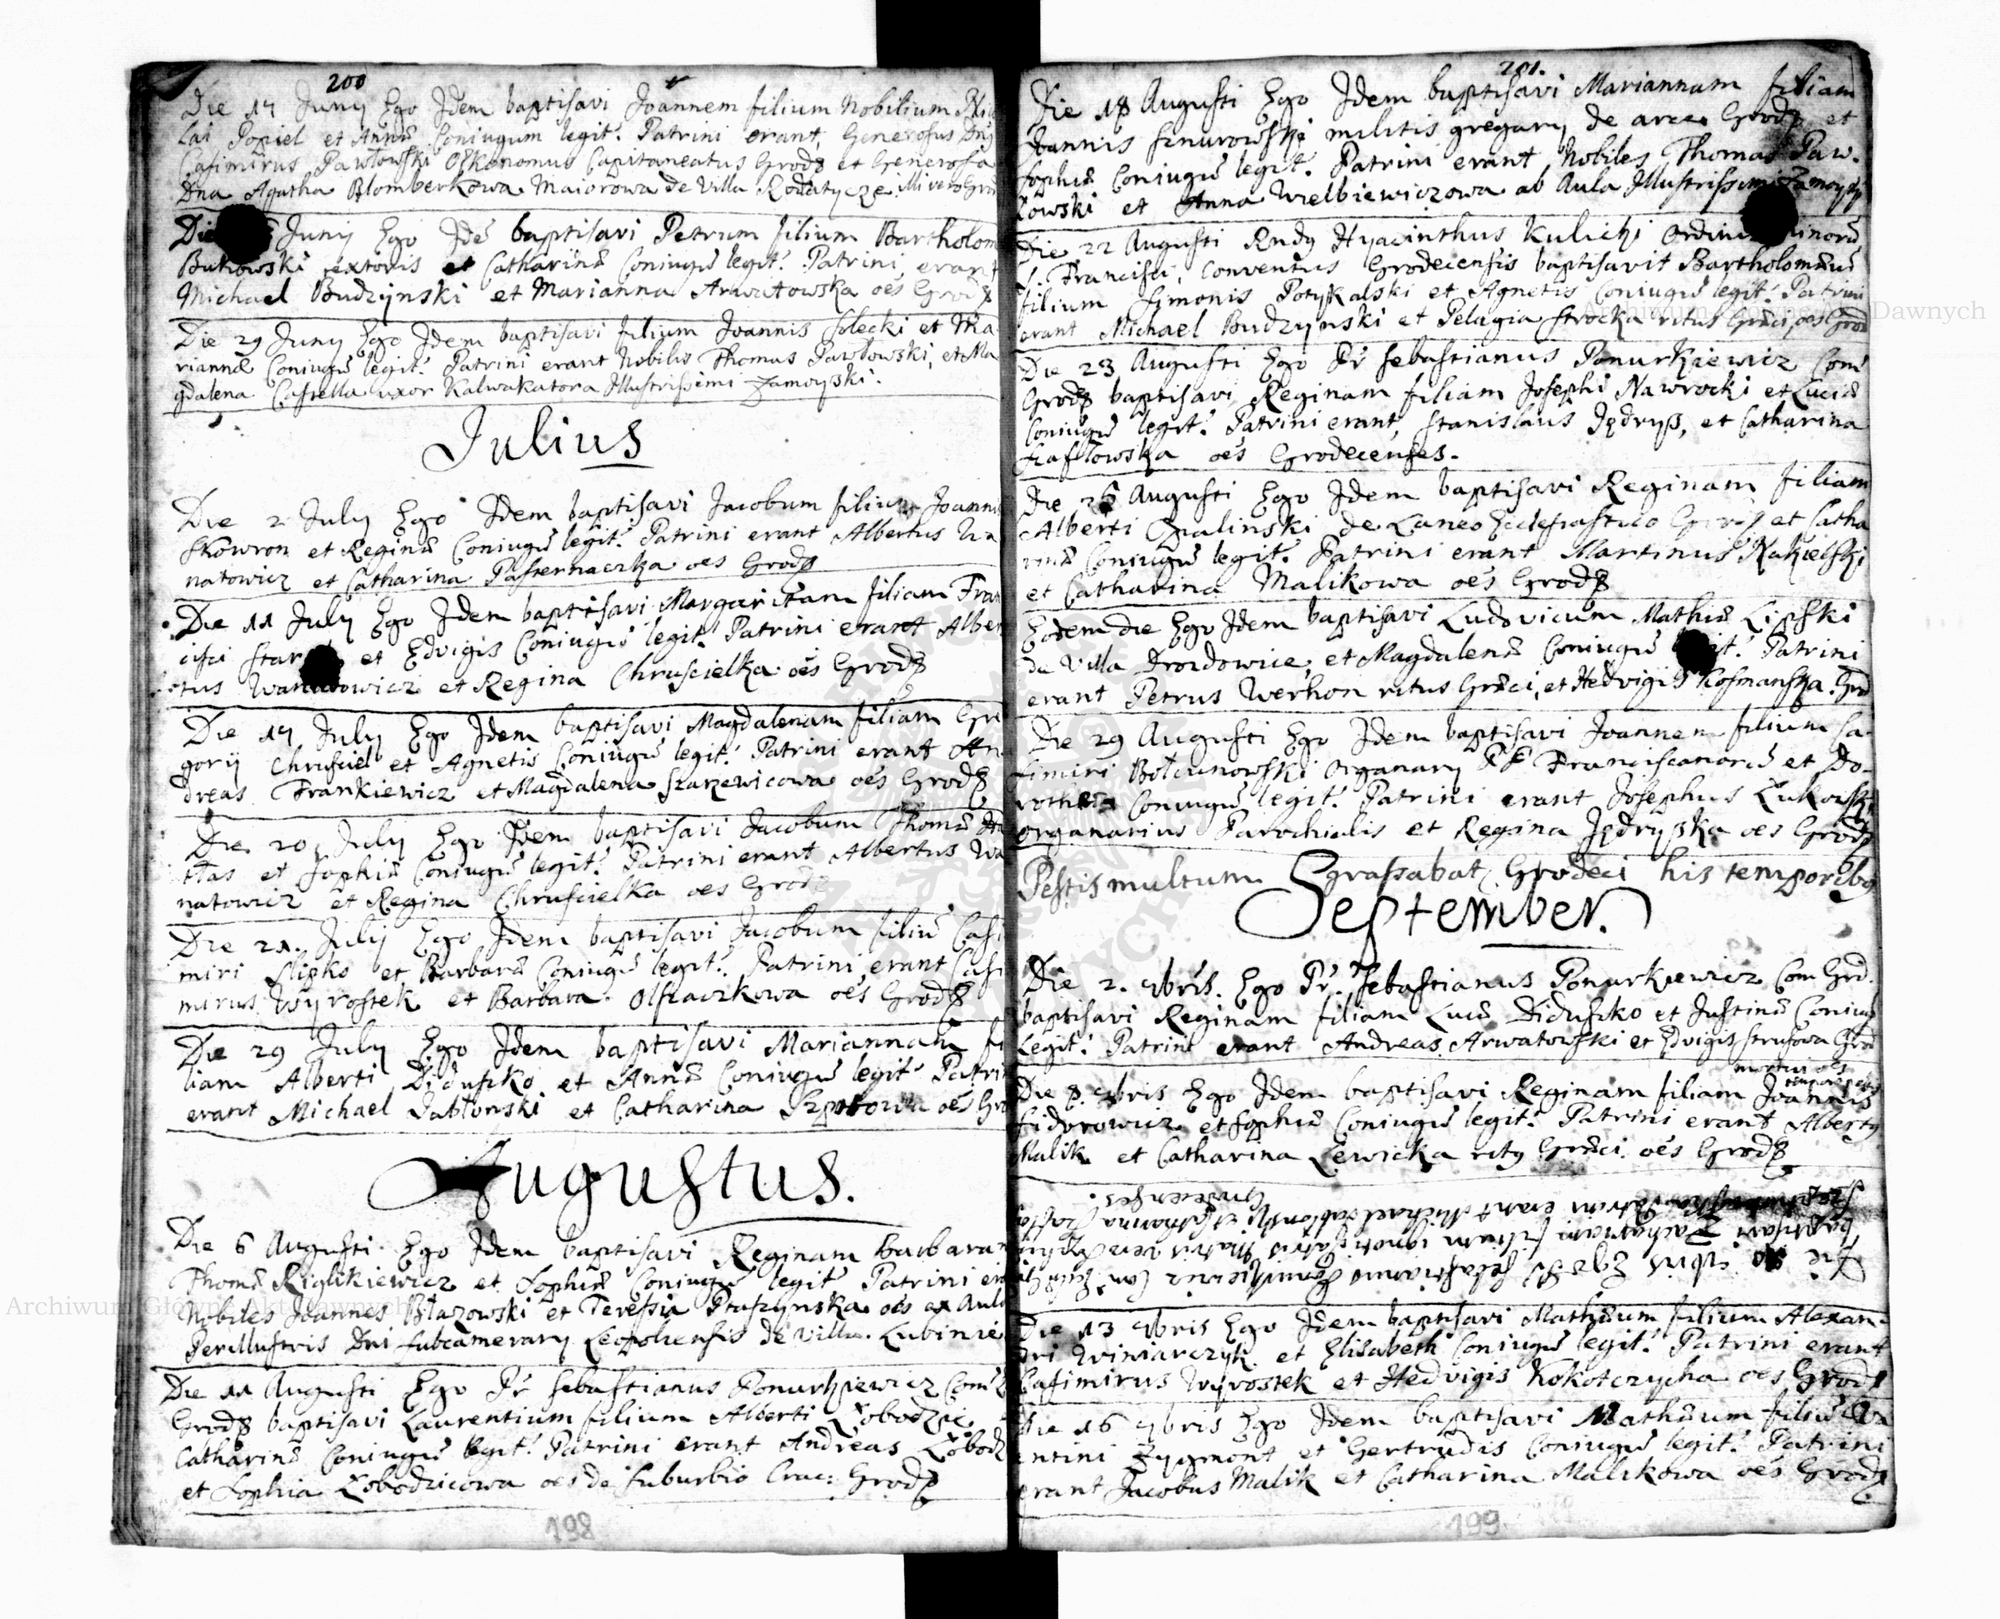 200
Die 17 Juny Ego Idem baptisavi Joannem filium Nobilium
lai Popiel et Annæ Coniugum legit: Patrini erant, Generosus Dns
Casimirus Pawłowski Oekonomus Capitaneatus Grod et Generosa
Dna Agatha Blomberkowa Maiorowa de Villa Rodatycze
Die Juny Ego Idē baptisavi Petrum filium Bartholom
Bukowski textoris et Catharinæ Coniugū legit: Patrini erant
Michael Budzynski et Marianna Arwatowska oēs Grod
Die 29 Juny Ego Idem baptisavi filium Joannis Solecki et Ma-
riannæ Coniugū legit: Patrini erant Nobilis Thomas Pawłowski, et Ma
gdalena Castella uxor Kalwakatora Illustrissimi Zamoyski.
Julius
Die 2 July Ego Idem baptisavi Jacobum filium Joannis
Skowron et Reginæ Coniugū legit: Patrini erant Albertus Wa
natowicz et Catharina Pasternaczka oes Grod
Die 11 July Ego Idem baptisavi Margaritam filiam Fran
cisci et Edvigis Coniugū legit: Patrini erant Alber
tus et Regina Chruscielka oēs Grod
Die 17 July Ego Idem baptisavi Magdalenam filiam Gre
gorij Chrusciel et Agnetis Coniugū legit: Patrini erant An
dreas Frankiewicz et Magdalena Szarzewicowa oēs Grod
Die 20 July Ego Idem baptisavi Jacobum Thomæ
et Sophiæ Coniugū legit: Patrini erant Albertus Wa
natowicz et Regina Chruscielka oes Grod
Die 21. Julij Ego Idem baptisavi Jacobum filiū Casi
miri Slipko et Barbaræ Coniugū legit: Patrini erant Casi
mirus Wyrostek et Barbara Olszaczkowa oēs Grod
Die 29 July Ego Idem baptisavi Mariannam fi
liam Alberti Diduszko et Annæ Coniugū legit: Patrini
erant Michael Jabłonski et Catharina Szpotowa oēs Gro
Augustus.
Die 6 Augusti Ego Idem baptisavi Reginam Barbaram
Thomæ Riglikiewicz et Sophiæ Coniugū legit: Patrini er
Nobiles Joannes Błazowski et Teresia Pruszynska oēs ex Aula
Perillustris Dni Subcamerary Leopoliensis de Villa Lubinie
Die 11 Augusti Ego Pr Sebastianus Ponurkiewicz Com
Grod baptisavi Laurentium filium Alberti Łobodzic
Catharinæ Coniugū legit: Patrini erant Andreas Łobodz
et Sophia Łobodzicowa oes de Suburbio Crac: Grod
198
201.
Die 18 Augusti Ego Idem baptisavi Mariannam filiam
Joannis Sznurowski militis gregary de arce Grod et
Sophiæ Coniugū legit: Patrini erant Nobiles Thomas Paw-
łowski et Anna Wielbiewiczowa ab Aula Illustrissimi Zamoyski
Die 22 Augusti Rndg Hyacinthus Kulicki Ordinis Minorū
S. Francisci Conventus Grodecensis baptisavit Bartholomæū
filium Simonis Potykalski et Agnetis Coniugū legit: Patrini
erant Michael Budzynski et Pelagia Strocka ritus Græci, oēs Grod
Die 23 Augusti Ego Pr Sebastianus Ponurkiewicz Com
Grod baptisavi Reginam filiam Josephi Nawrocki et Luciæ
Coniugū legit: Patrini erant, Stanislaus Jędryß, et Catharina
oēs Grodecenses.
Die 26 Augusti Ego Idem baptisavi Reginam filiam
Alberti Opalinski de Laneo Ecclesiastico Grod et Catha
rinæ Coniugū legit: Patrini erant Martinus Kukielski
et Catharina Malikowa oēs Grod
Eodem die Ego Idem baptisavi Ludovicum Mathiæ Lipski
de Villa Drozdowice, et Magdalenæ Coniugū legit: Patrini
erant Petrus Werhon ritus Græci, et Hedvigis Kosmanska Grod
Die 29 Augusti Ego Idem baptisavi Joannem filium Ca-
simiri Bołcunowski Organary PP Franciscanorū et Do-
rotheæ Coniugū legit: Patrini erant Josephus Łukowski
Organarius Parochialis et Regina Jędryßka oes Grod
Pestis multum grassabat Grodeci his temporibg
September.
Die 2. 7bris. Ego Pr. Sebastianus Ponurkiewicz Com Grd.
baptisavi Reginam filiam Lucæ Diduszko et Justinæ Coniugū
Legit: Patrini erant Andreas Arwatowski et Edvigis Strusowa Grod
mortui oēs
tempore pestis
Die 8. 7bris Ego Idem baptisavi Reginam filiam Joannis
Sidorowicz et Sophiæ Coniugū legit: Patrini erant Albertg
Malik et Catharina Lewicka ritg Græci oēs Grod
Die 10 7bris Ego Pr Sebastianus Ponurkiewicz Com
baptisavi
Patrini erant Michael Jabłonski et Catharina
Grodecenses.
Die 13 7bris Ego Idem baptisavi Mathæum filium Alexan-
dri Winiarczyk et Elisabeth Coniugū legit: Patrini erant
Casimirus Wyrostek et Hedvigis Kokotczycha oēs Grod
Die 16 7bris Ego Idem baptisavi Mathæum filiū Va
lentini Zygmont et Gertrudis Coniugū legit: Patrini
erant Jacobus Malik et Catharina Malikowa oēs Grod
199
Archiwum Główne Akt Dawnych